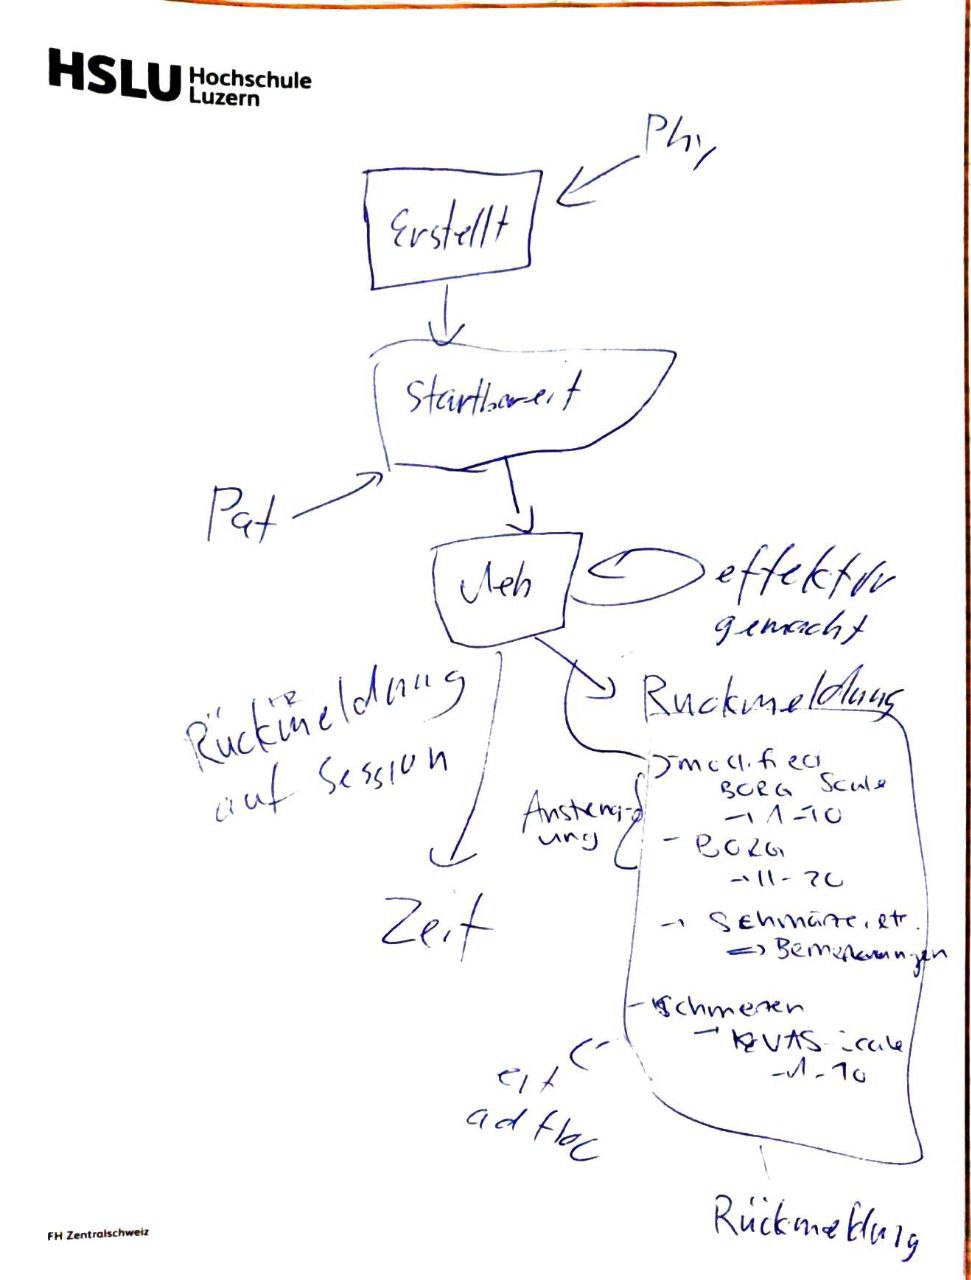 HSLU Hochschule
Luzern
Phy
Erstellt
Startbereit
Pat
effektiv
gemacht
Rückmeldung
auf Session
Rückmeldung
modified
BORG Scale
→ 1-10
Anstreng-
ung
- BORG
→ 11-20
→ Schmärze, etr.
=> Bemerkungen
- Schmerzen
→ VAS-scale
-1-10
Zeit
ad floc
Rückmeldung
FH Zentralschweiz